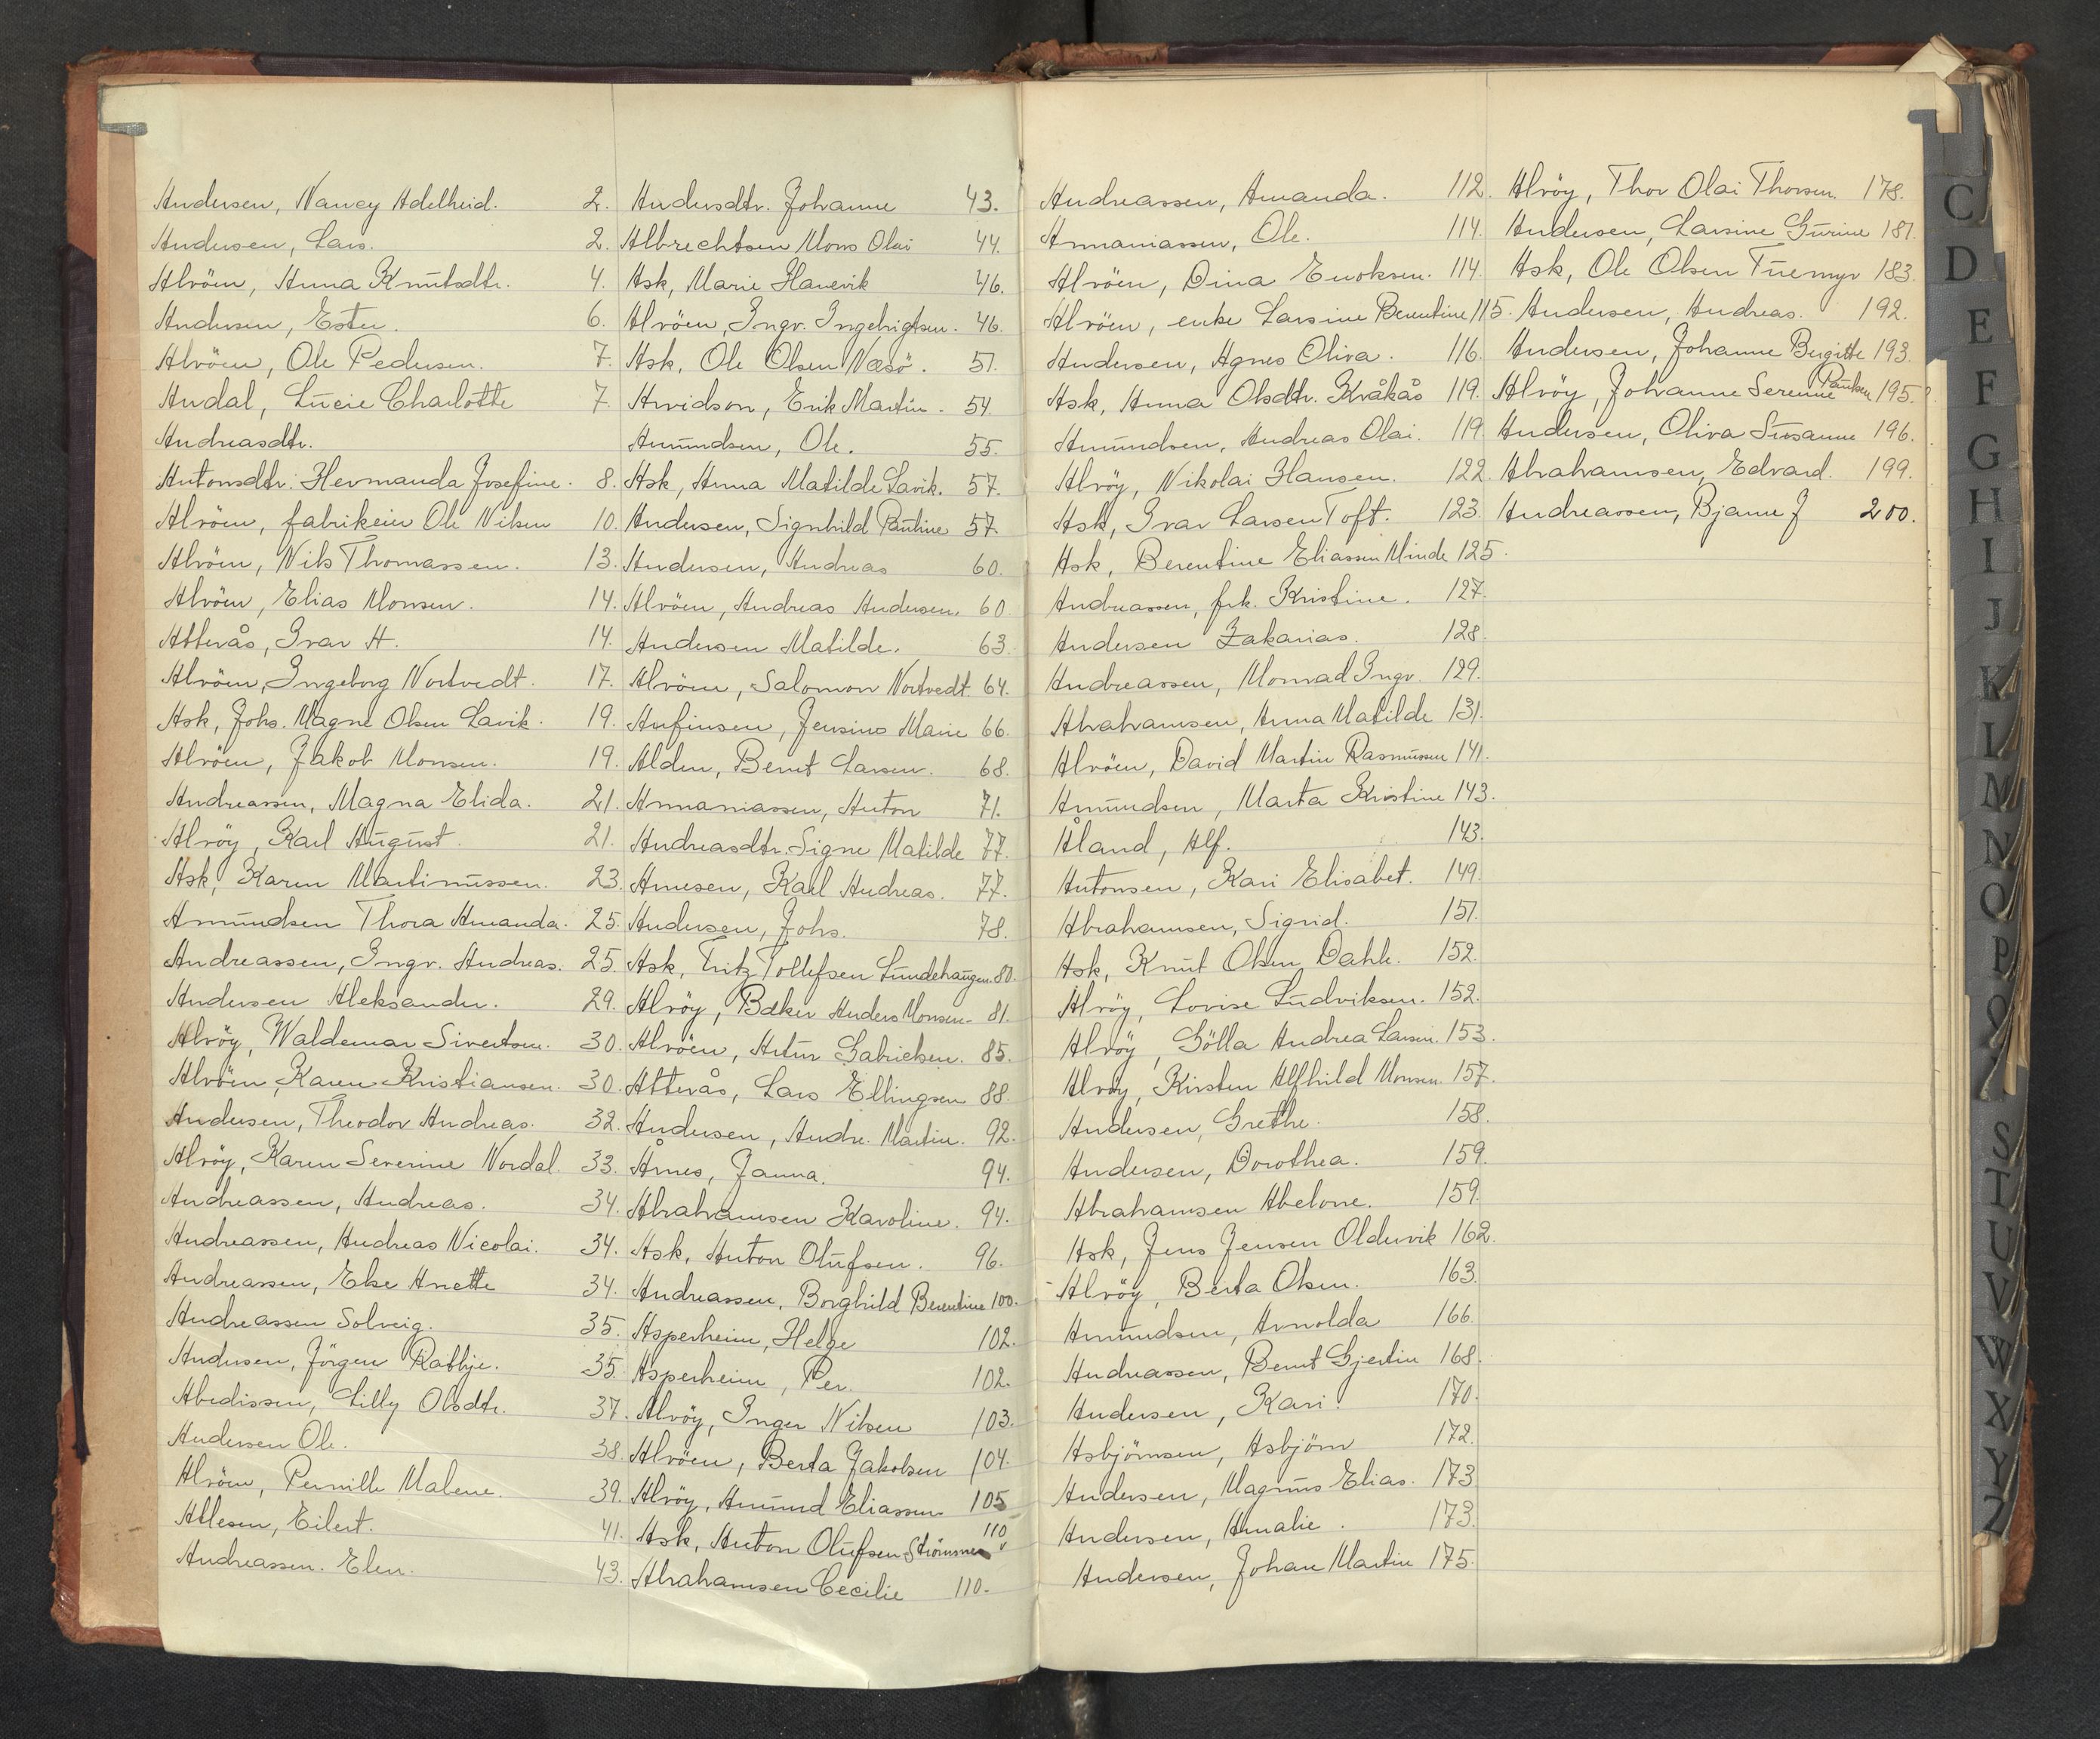 Andersen, Nancy Adelheid. 2.
Andersen, Lars. 2.
Alvöen, Anna Knutsdtr. 4.
Andersen, Ester. 6.
Alvöen, Ole Pedersen. 7.
Andal, Lucie Charlotte 7.
Andreasdtr.
Antonsdtr. Hermanda Josefine. 8.
Alvöen, fabrikeier Ole Nilsen 10.
Alvöen, Nils Thomassen. 13.
Alvöen, Elias Monsen. 14.
Atterås, Ivar A. 14.
Alvöen, Ingeborg Nortvedt. 17.
Ask, Johs. Magne Olsen Lavik. 19.
Alvöen, Jakob Monsen. 19.
Andreassen, Magna Elida. 21.
Alvöy, Karl August. 21.
Ask, Karen Martinussen. 23.
Amundsen Thora Amanda. 25.
Andreassen, Ingv. Andreas. 25.
Andersen Aleksander. 29.
Alvöy, Waldemar Sivertsen. 30.
Alvöen, Karen Kristiansen. 30.
Andersen, Theodor Andreas. 32.
Alvöy, Karen Severine Nordal. 33.
Andreassen, Andreas. 34.
Andreassen, Andreas Nicolai. 34.
Andreassen, Else Anette 34.
Andreassen Solveig. 35.
Andersen, Jörgen Rabbje. 35.
Abedissen, Lilly Olsdtr. 37.
Andersen Ole. 38.
Alvöen, Pernille Malene. 39.
Atlesen, Eilert. 41.
Andreassen. Elen. 43.
Andersdtr. Johanne 43.
Albrechtsen Mons Olai 44.
Ask, Marie Hanevik 46.
Alvöen, Ingv. Ingebrigtsen. 46.
Ask, Ole Olsen Nesö. 51.
Arvidson, Erik Martin. 54.
Amundsen, Ole. 55.
Ask, Anna Matilde Lavik. 57.
Andersen, Signhild Pauline 57.
Andersen, Andreas 60.
Alvöen, Andreas Andersen. 60
Andersen Matilde. 63.
Alvöen, Salomon Nortvedt. 64.
Anfinsen, Jensine Marie 66.
Alden, Bernt Larsen. 68.
Annaniassen, Anton 71.
Andreasdtr. Signe Matilde 77.
Arnesen, Karl Andreas. 77.
Andersen, Johs. 78.
Ask, Fritz Tollefsen Lundehaugen. 80.
Alvöy, Bæker Anders Monsen. 81.
Alvöen, Artur Gabrielsen. 85.
Atterås, Lars Ellingsen 88.
Andersen, Andr. Martin. 92.
Årnes, Janna. 94.
Abrahamsen Karoline. 94.
Ask, Anton Olufsen. 96.
Andreassen, Borghild Berentine 100.
Asperheim, Helge 102.
Asperheim, Per. 102.
Alvöy, Inger Nilsen 103.
Alvöen, Berta Jakobsen 104.
Alvöy, Amund Eliassen 105
Ask, Anton Olufsen Strömmen 110
Abrahamsen Cecilie 110.
Andreassen, Amanda. 112.
Annaniassen, Ole. 114.
Alvöen, Dina Enoksen. 114.
Alvöen, enke Larsine Berentine 115.
Andersen, Agnes Oliva. 116.
Ask, Anna Olsdtr. Kråkås 119.
Amundsen, Andreas Olai. 119
Alvöy, Nikolai Hansen. 122.
Ask, Ivar Larsen Toft. 123.
Ask, Berentine Eliassen Minde 125.
Andreassen, frk. Kristine. 127.
Andersen Zakarias. 128.
Andreassen, Monrad Ingv. 129.
Abrahamsen, Anna Matilde 131.
Alvöen, David Martin Rasmussen 141.
Amundsen, Marta Kristine 143.
Åland, Alf. 143.
Antonsen, Kari Elisabet. 149.
Abrahamsen, Sigrid. 151.
Ask, Knut Olsen Dahle. 152.
Alvöy, Lovise Ludviksen. 152.
Alvöy, Gölla Andrea Larsen. 153.
Alvöy, Kirsten Alfhild Monsen. 157.
Andersen, Grethe. 158.
Andersen, Dorothea. 159.
Abrahamsen Abelone. 159.
Ask, Jens Jensen Oldervik 162.
Alvöy, Berta Olsen. 163.
Amundsen, Arnolda 166.
Andreassen, Bernt Gjertin 168.
Andersen, Kari. 170.
Asbjörnsen, Asbjörn 172.
Andersen, Magnus Elias. 173
Andersen, Amalie. 173.
Andersen, Johan Martin 175.
Alvöy, Thor Olai Thorsen. 178.
Andersen, Larsine Gurine 181.
Ask, Ole Olsen Tuemyr 183.
Andersen, Andreas. 192.
Andersen, Johanne Bergitte 193.
Alvöy, Johanne Serenne Paulsen 195.
Andersen, Oliva Susanne 196.
Abrahamsen, Edvard. 199.
Andreassen, Bjarne J 200.
C
D
E
F
G
H
I
J
K
L
M
N
O
P
Q
S
T
U
V
W
X
Y
Z